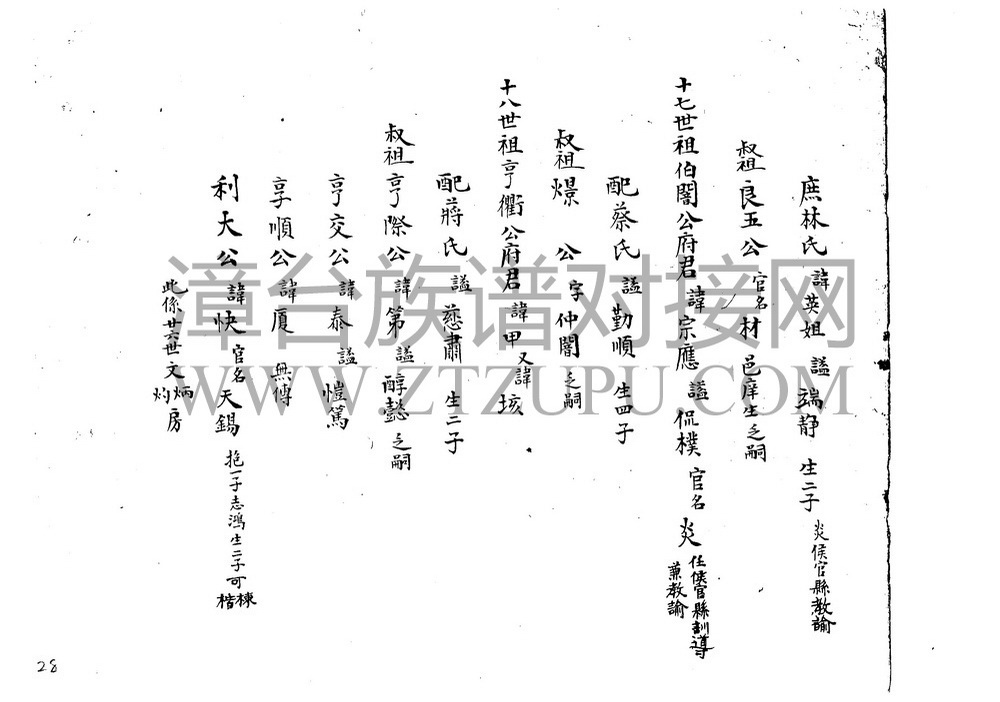 庶林氏 諱英姐 謚端静 生二子 炎侯官縣教諭
叔祖良玉公 官名材 邑庠生乏嗣
十七世祖伯闇公府君 諱宗應 謚侃樸 官名炎 任侯官縣訓導兼教諭
配蔡氏 謚勤順 生四子
叔祖㬌公 字仲闇 乏嗣
十八世祖亨衢公府君 諱甲又諱垓
配蔣氏 謚慈肅 生二子
叔祖亨際公 諱第謚醇懿 乏嗣
亨交公 諱泰謚愷篤
享順公 諱厦 無傳
利大公 諱快 官名天錫 抱一子志鴻生二子可棟楷
此係廿六世文炳灼房
28
漳台族谱对接网
WWW.ZTZUPU.COM